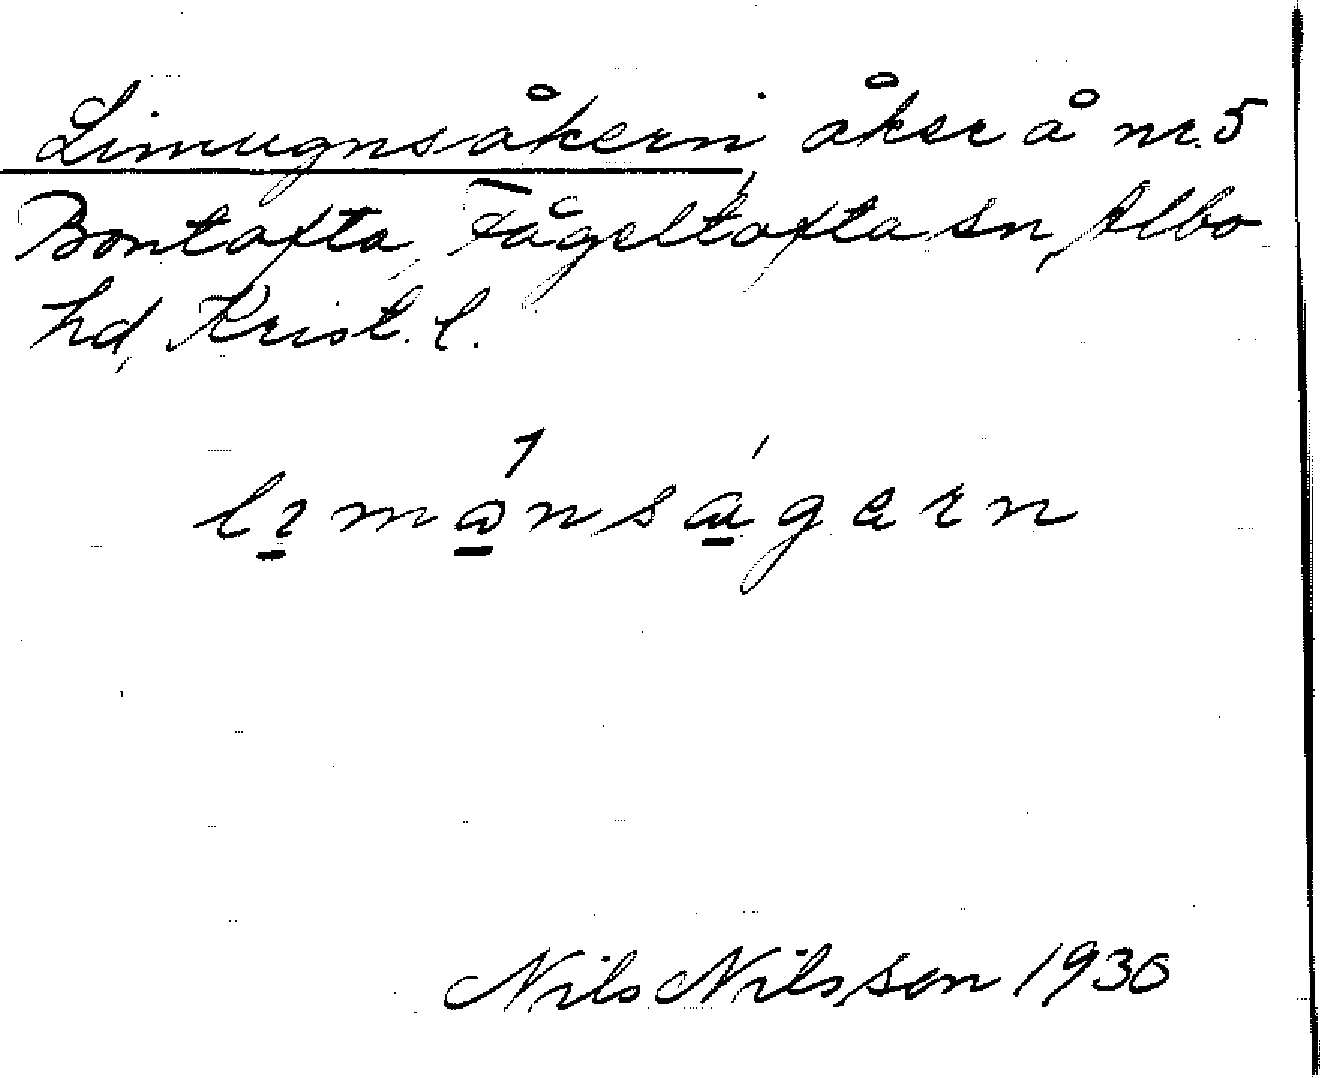 Limugnsåkern, åker å nr. 5
Bontofta, Fågeltofta sn, Albo
hd, Krist. l.
Nils Nilsson 1930